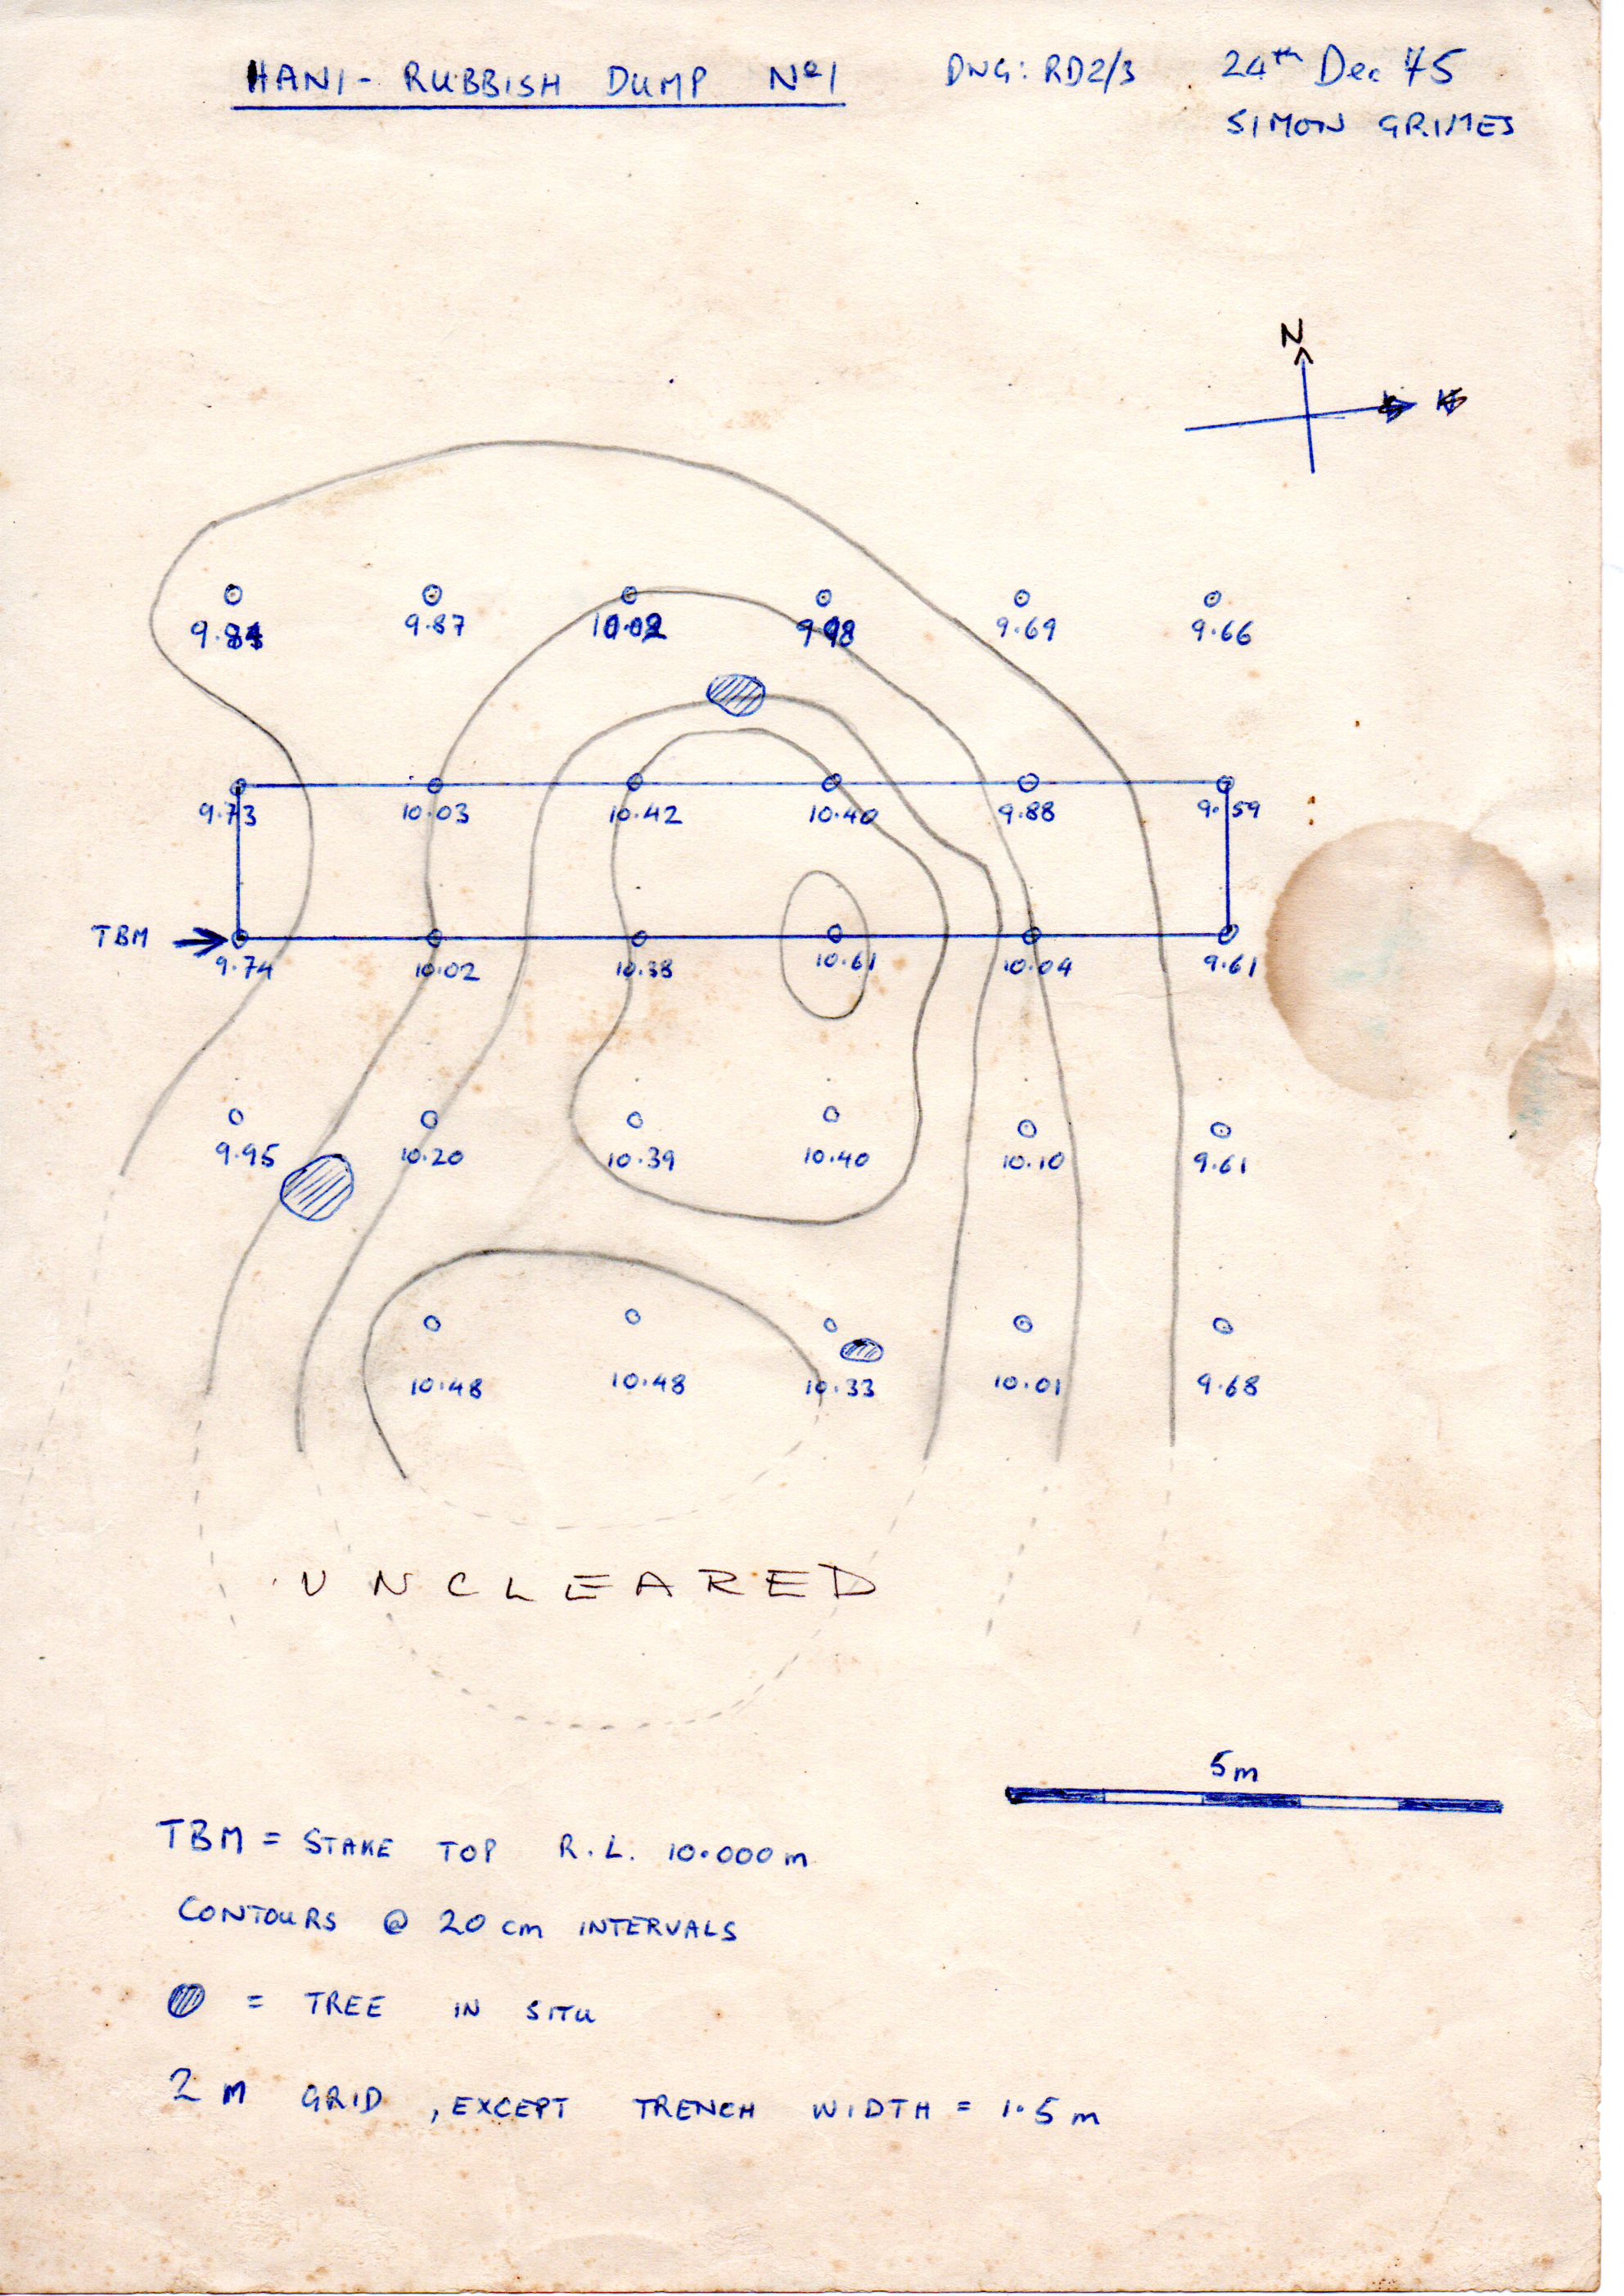 HANI - RUBBISH DUMP Nº1 DWG: RD2/3 24th Dec 75
SIMON GRIMES
N
9.87 9.98 9.69 9.66
9.73 10.03 10.42 10.40 9.88 9.59
TBM
9.74 10.02 10.38 10.61 10.04 9.61
9.95 10.20 10.39 10.40 10.10 9.61
10.48 10.48 10.33 10.01 9.68
UNCLEARED
5m
TBM = STAKE TOP R.L. 10.000m
CONTOURS @ 20 cm INTERVALS
= TREE IN SITU
2 M GRID, EXCEPT TRENCH WIDTH = 1.5 m